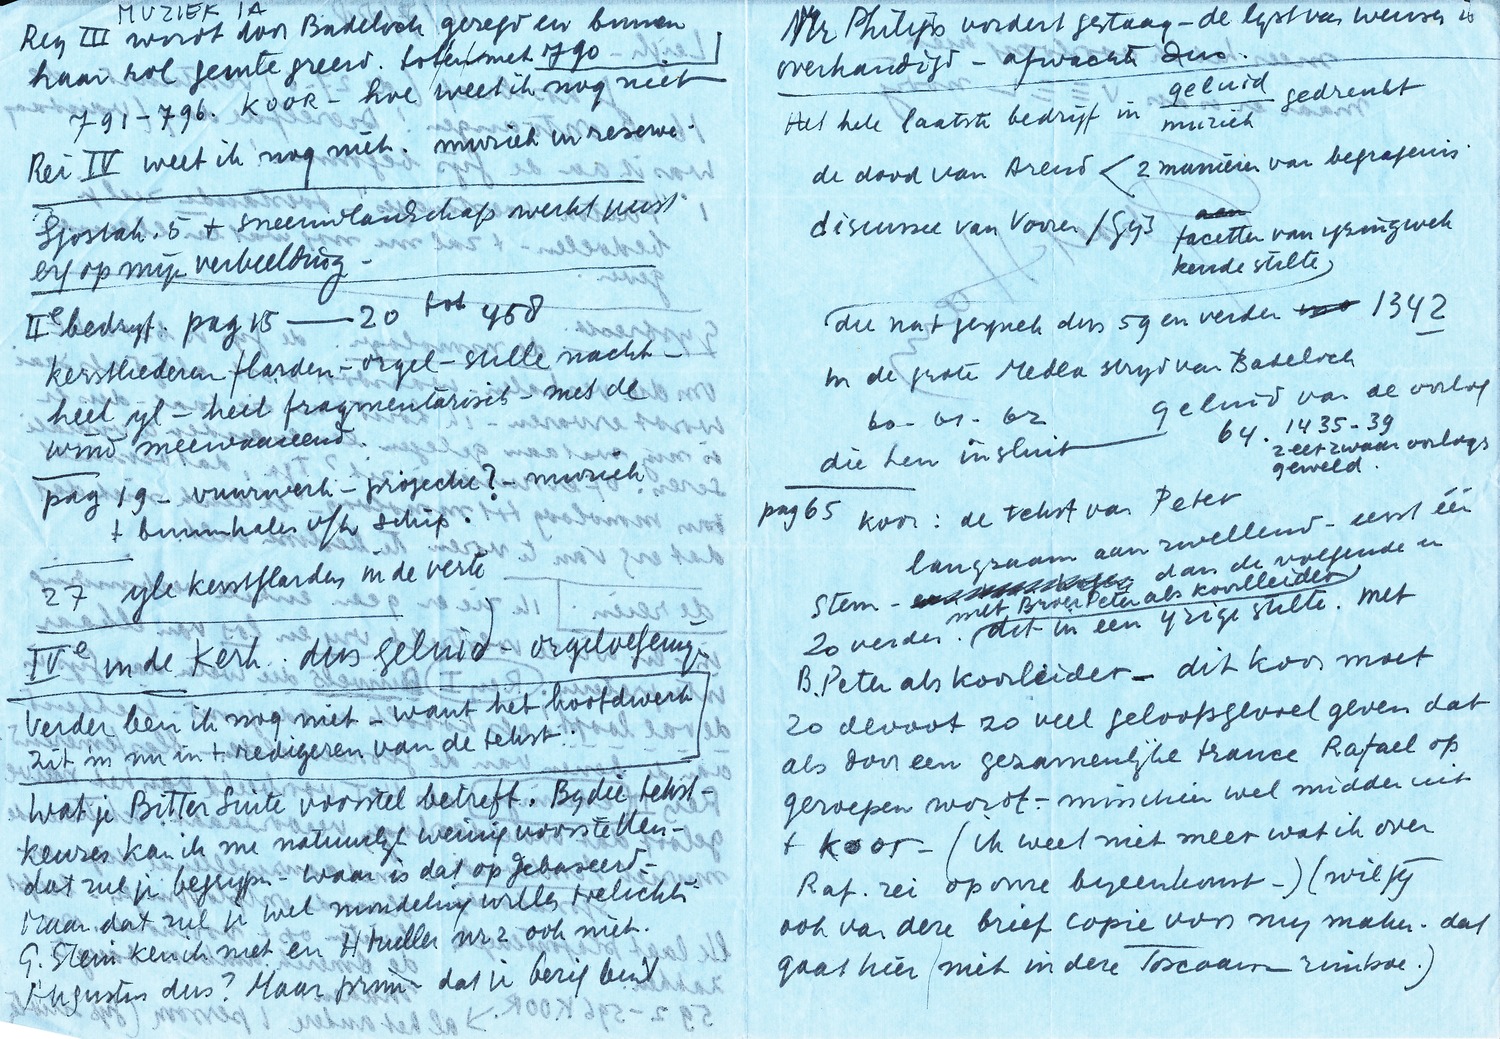 MUZIEK IA
Rey III wordt door Badeloch gezegd en binnen
haar rol geintegreerd. tot en met 790
791-796. KOOR - hoe weet ik nog niet
Rei IV weet ik nog niet. muziek in reserve.
Sjostak. 5 + sneeuwlandschap werkt juist
erg op mijn verbeelding -
IIe bedryf. pag 15 — 20 tot 468
kerstliederen flarden - orgel - stille nacht -
heel yl - heel fragmentarisch - met de
wind meewaaiend.
pag 19 - vuurwerk - projectie? - muziek
+ binnenhalen v/h schip.
27 yle kerstflarden in de verte
IVe in de kerk.. dus geluid - orgeloefening -
Verder ben ik nog niet - want het hoofdwerk
zit 'm nu in 't redigeren van de tekst.
Wat je Bitter Suite voorstel betreft. By die tekst-
keuzes kan ik me natuurlyk weinig voorstellen -
dat zul je begrypen - waar is dat op gebaseerd -
Maar dat zul je wel mondeling willen toelichten
G. Stein ken ik niet en H Muller nr 2 ook niet.
Augustus dus? Maar prima dat je bezig bent
Mr Philips vordert gestaag - de lyst van wensen is
overhandigd - afwachten dus.
Het hele laatste bedrijf in geluid / muziek gedrenkt
de dood van Arend < 2 manieren van begrafenis.
discussie van Vooren / Gijs
facetten van ijzingwek
kende stilte
die nat gesprek dus 59 en verder 1342
In de grote Medea stryd van Badeloch
60 - 61 - 62 geluid van de oorlog
die hen insluit
64. 1435-39
zeer zwaar oorlogs
geweld.
pag 65 koor: de tekst van Peter
langzaam aanzwellend - eerst één
stem - dan de volgende en
met Broer Peter als koorleider
zo verder. dit in een yzige stilte. met
B. Peter als koorleider - dit koor moet
zo devoot zo veel geloofsgevoel geven dat
als door een gezamenlijke trance Rafael op
geroepen wordt - misschien wel midden uit
't koor - (ik weet niet meer wat ik over
Raf. zei op onze byeenkomst -) (wil jy
ook van deze brief copie voor my maken. dat
gaat hier niet in deze Toscaanse rimboe.)